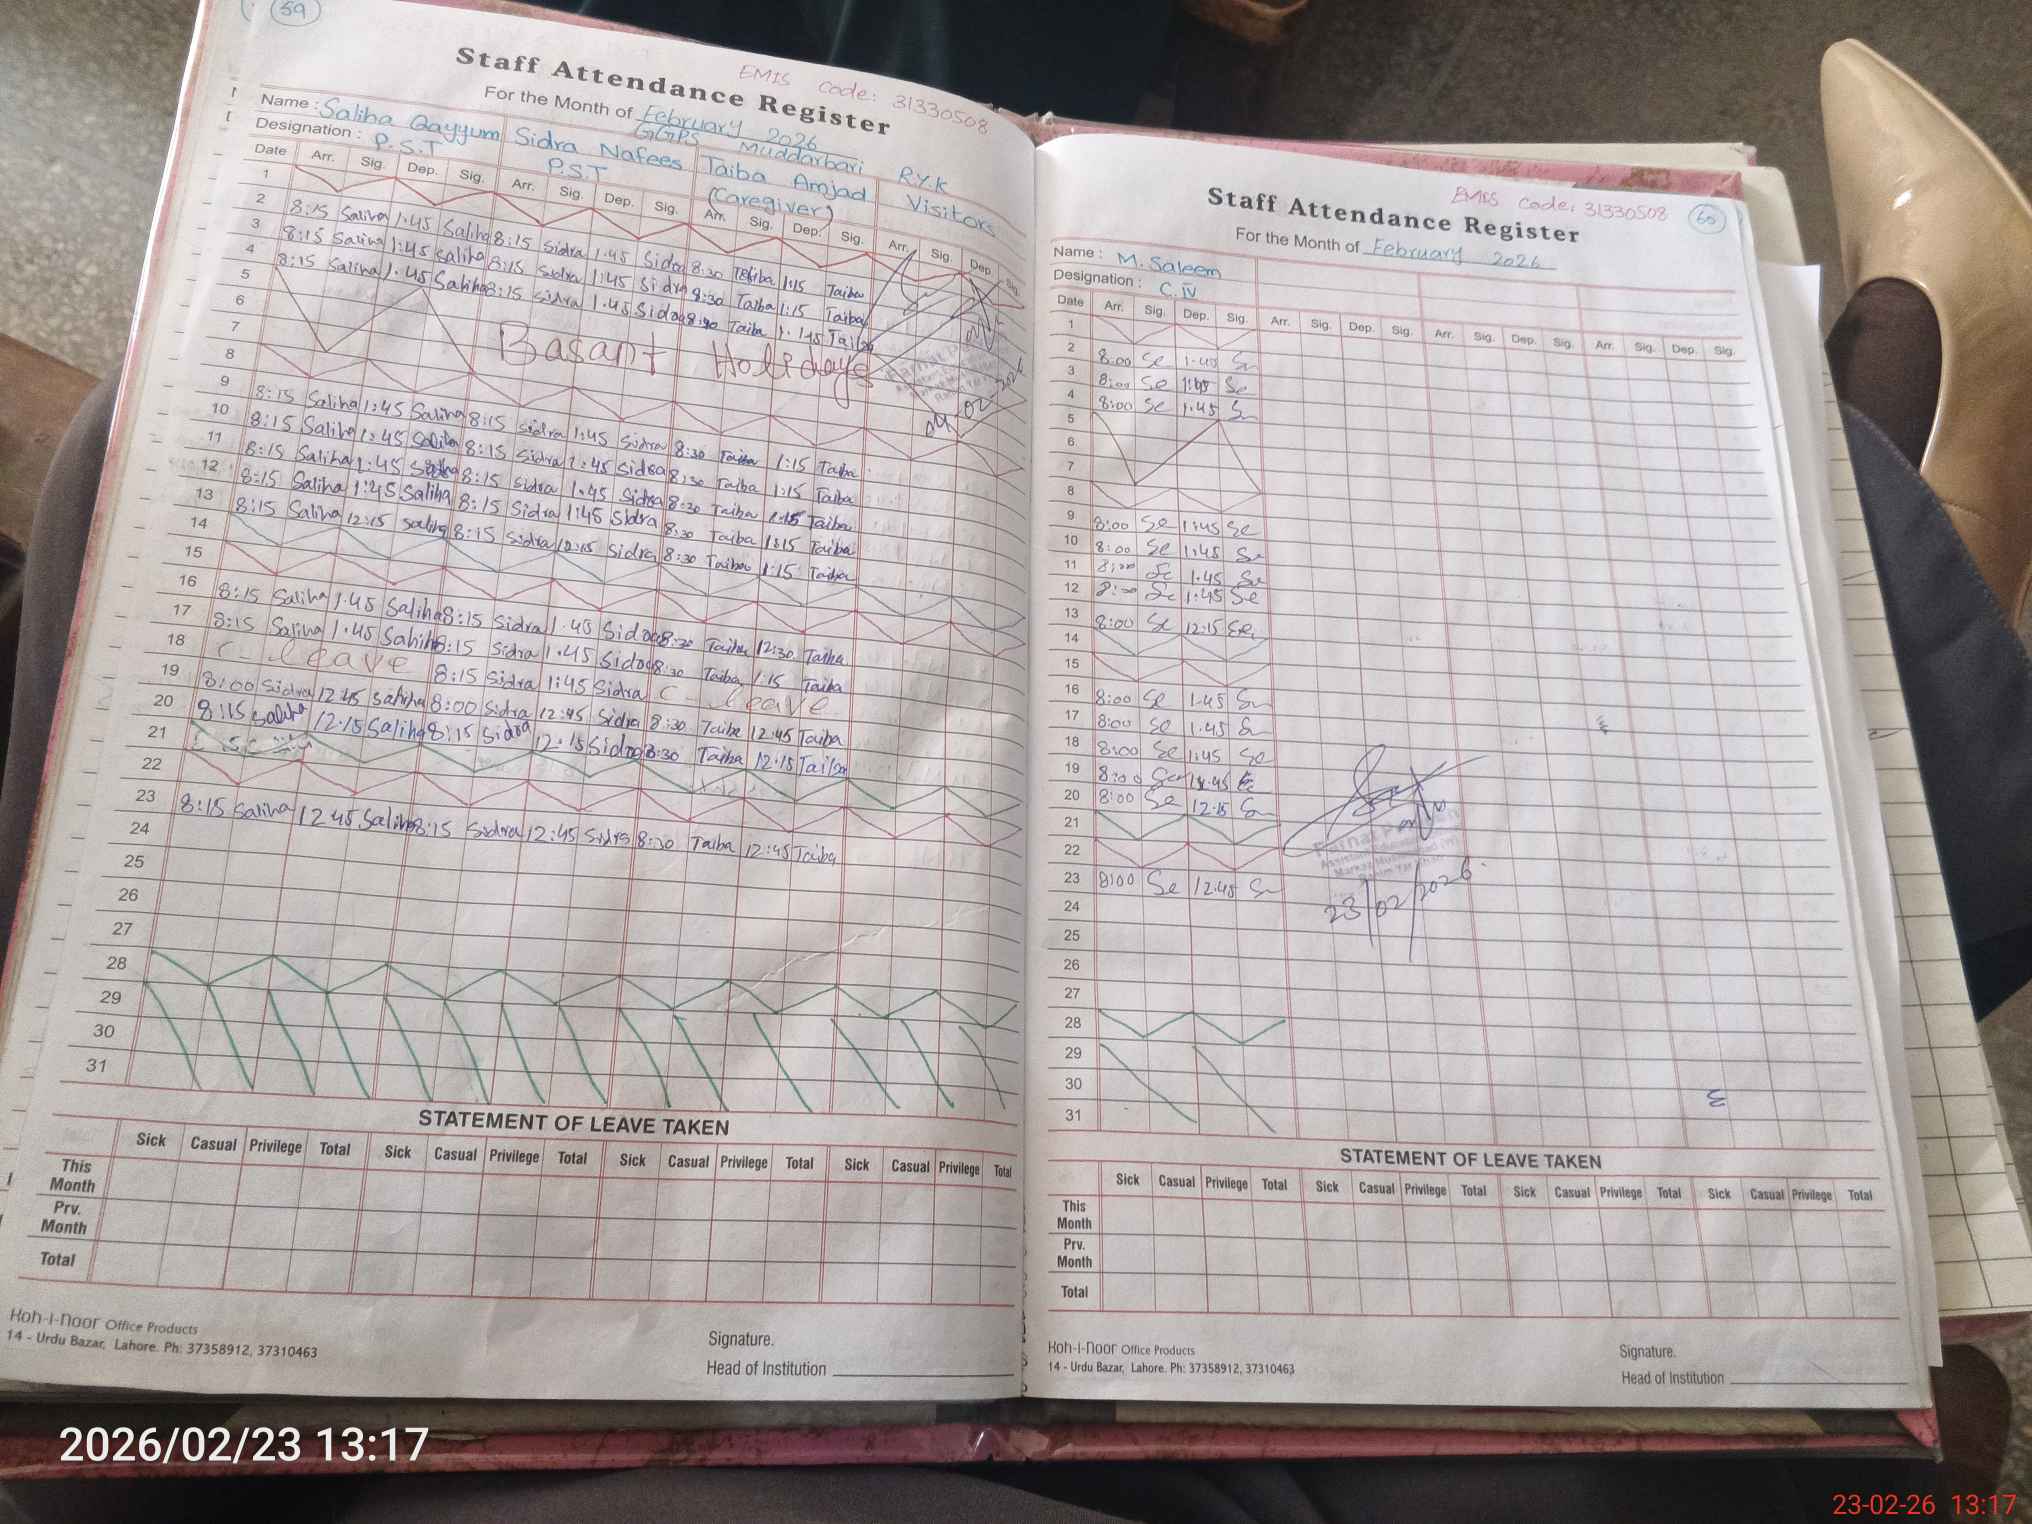 59
Staff Attendance Register
EMIS Code: 31330508
For the Month of February 2026
GGPS Muddarbari R.Y.K
Name: Saliha Qayyum Sidra Nafees Taiba Amjad Visitors
Designation: P.S.T P.S.T (Caregiver)
Date Arr. Sig. Dep. Sig. Arr. Sig. Dep. Sig. Arr. Sig. Dep. Sig. Arr. Sig. Dep. Sig.
1
2 8:15 Saliha 1:45 Saliha 8:15 Sidra 1:45 Sidra 8:30 Taiba 1:15 Taiba
3 8:15 Saliha 1:45 Saliha 8:15 Sidra 1:45 Sidra 8:30 Taiba 1:15 Taiba
4 8:15 Saliha 1:45 Saliha 8:15 Sidra 1:45 Sidra Taiba Taiba
5
6 Basant Holidays
7
8
9 8:15 Saliha 1:45 Saliha 8:15 Sidra 1:45 Sidra 8:30 Taiba 1:15 Taiba
10 8:15 Saliha 1:45 Saliha 8:15 Sidra 1:45 Sidra 8:30 Taiba 1:15 Taiba
11 8:15 Saliha 1:45 Saliha 8:15 Sidra 1:45 Sidra 8:30 Taiba 1:15 Taiba
12 8:15 Saliha 1:45 Saliha 8:15 Sidra 1:45 Sidra 8:30 Taiba 1:15 Taiba
13 8:15 Saliha 12:15 Saliha 8:15 Sidra 12:15 Sidra 8:30 Taiba 1:15 Taiba
14
15
16 8:15 Saliha 1:45 Saliha 8:15 Sidra 1:45 Sidra 8:30 Taiba 12:30 Taiba
17 8:15 Saliha 1:45 Saliha 8:15 Sidra 1:45 Sidra 8:30 Taiba 1:15 Taiba
18 C-leave 8:15 Sidra 1:45 Sidra C-leave
19 8:00 Sidra 12:45 Saliha 8:00 Sidra 12:45 Sidra 8:30 Taiba 12:45 Taiba
20 8:15 Saliha 12:15 Saliha 8:15 Sidra 12:15 Sidra 8:30 Taiba 12:15 Taiba
21
22
23 8:15 Saliha 12:45 Saliha 8:15 Sidra 12:45 Sidra 8:30 Taiba 12:45 Taiba
24
25
26
27
28
29
30
31
STATEMENT OF LEAVE TAKEN
Sick Casual Privilege Total Sick Casual Privilege Total Sick Casual Privilege Total Sick Casual Privilege Total
This Month
Prv. Month
Total
Koh-I-Noor Office Products
14 - Urdu Bazar, Lahore. Ph: 37358912, 37310463
Signature.
Head of Institution
EMIS Code: 31330508
60
Staff Attendance Register
For the Month of February 2026
Name: M. Saleem
Designation: C.IV
Date Arr. Sig. Dep. Sig. Arr. Sig. Dep. Sig. Arr. Sig. Dep. Sig. Arr. Sig. Dep. Sig.
1
2 8:00 Se 1:45
3 8:00 Se 1:45 Se
4 8:00 Se 1:45
5
6
7
8
9 8:00 Se 1:45 Se
10 8:00 Se 1:45 Se
11 8:00 Se 1:45 Se
12 8:00 Se 1:45 Se
13 8:00 Se 12:15 Se
14
15
16 8:00 Se 1:45
17 8:00 Se 1:45
18 8:00 Se 1:45 Se
19 8:00
20 8:00 Se 12:15
21
22
23 8:00 Se 12:45
23/02/2026
24
25
26
27
28
29
30
31
STATEMENT OF LEAVE TAKEN
Sick Casual Privilege Total Sick Casual Privilege Total Sick Casual Privilege Total Sick Casual Privilege Total
This Month
Prv. Month
Total
Koh-I-Noor Office Products
14 - Urdu Bazar, Lahore. Ph: 37358912, 37310463
Signature.
Head of Institution
2026/02/23 13:17
23-02-26 13:17